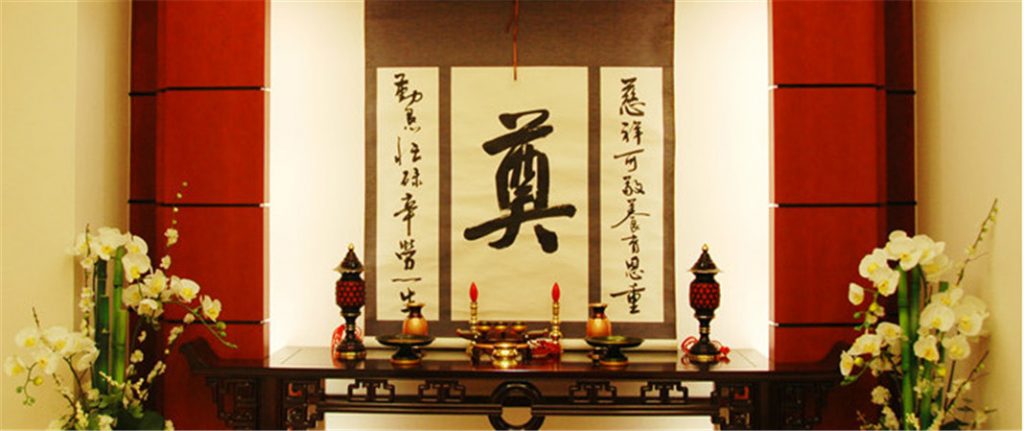 慈祥可敬養育恩重
奠
勤忙碌辛勞一生